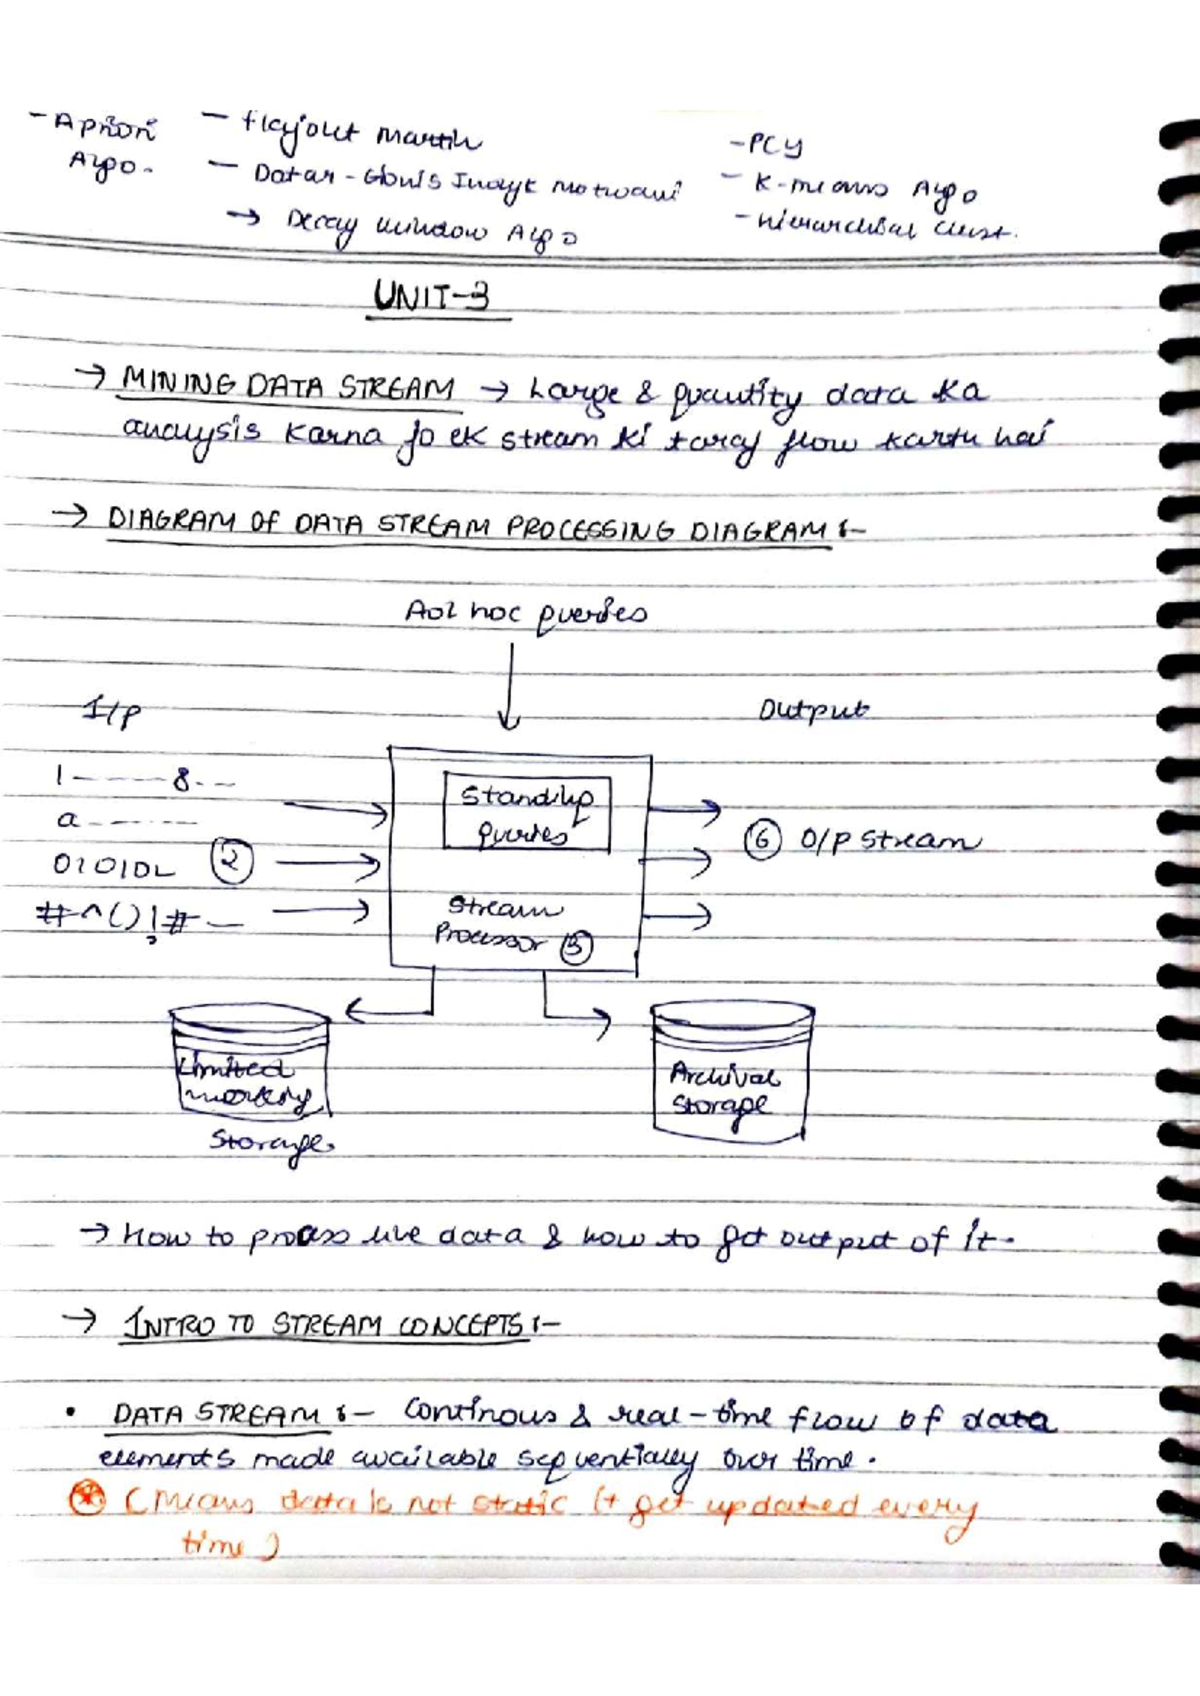 - Apriori Algo.
- flajolet Martin
- Datar-Gionis Indyk Motwani
→ Decay window Algo
- PCY
- K-means Algo
- Hierarchical clust.
UNIT-3
→ MINING DATA STREAM → Large & quantity data ka
analysis karna jo ek stream ki taraj flow kartu hai
→ DIAGRAM OF DATA STREAM PROCESSING DIAGRAM :-
Ad hoc queries
I/P
Output
1-----8.--
a------
01010L ②
#^()!#--
Standup
queries
Stream
Processor ⑤
⑥ O/P Stream
Limited
working
Storage.
Archival
Storage
→ How to process live data & how to get output of it.
→ INTRO TO STREAM CONCEPTS :-
• DATA STREAM :- Continous & real-time flow of data
elements made available sequentially over time.
(Means data is not static it get updated every
time)